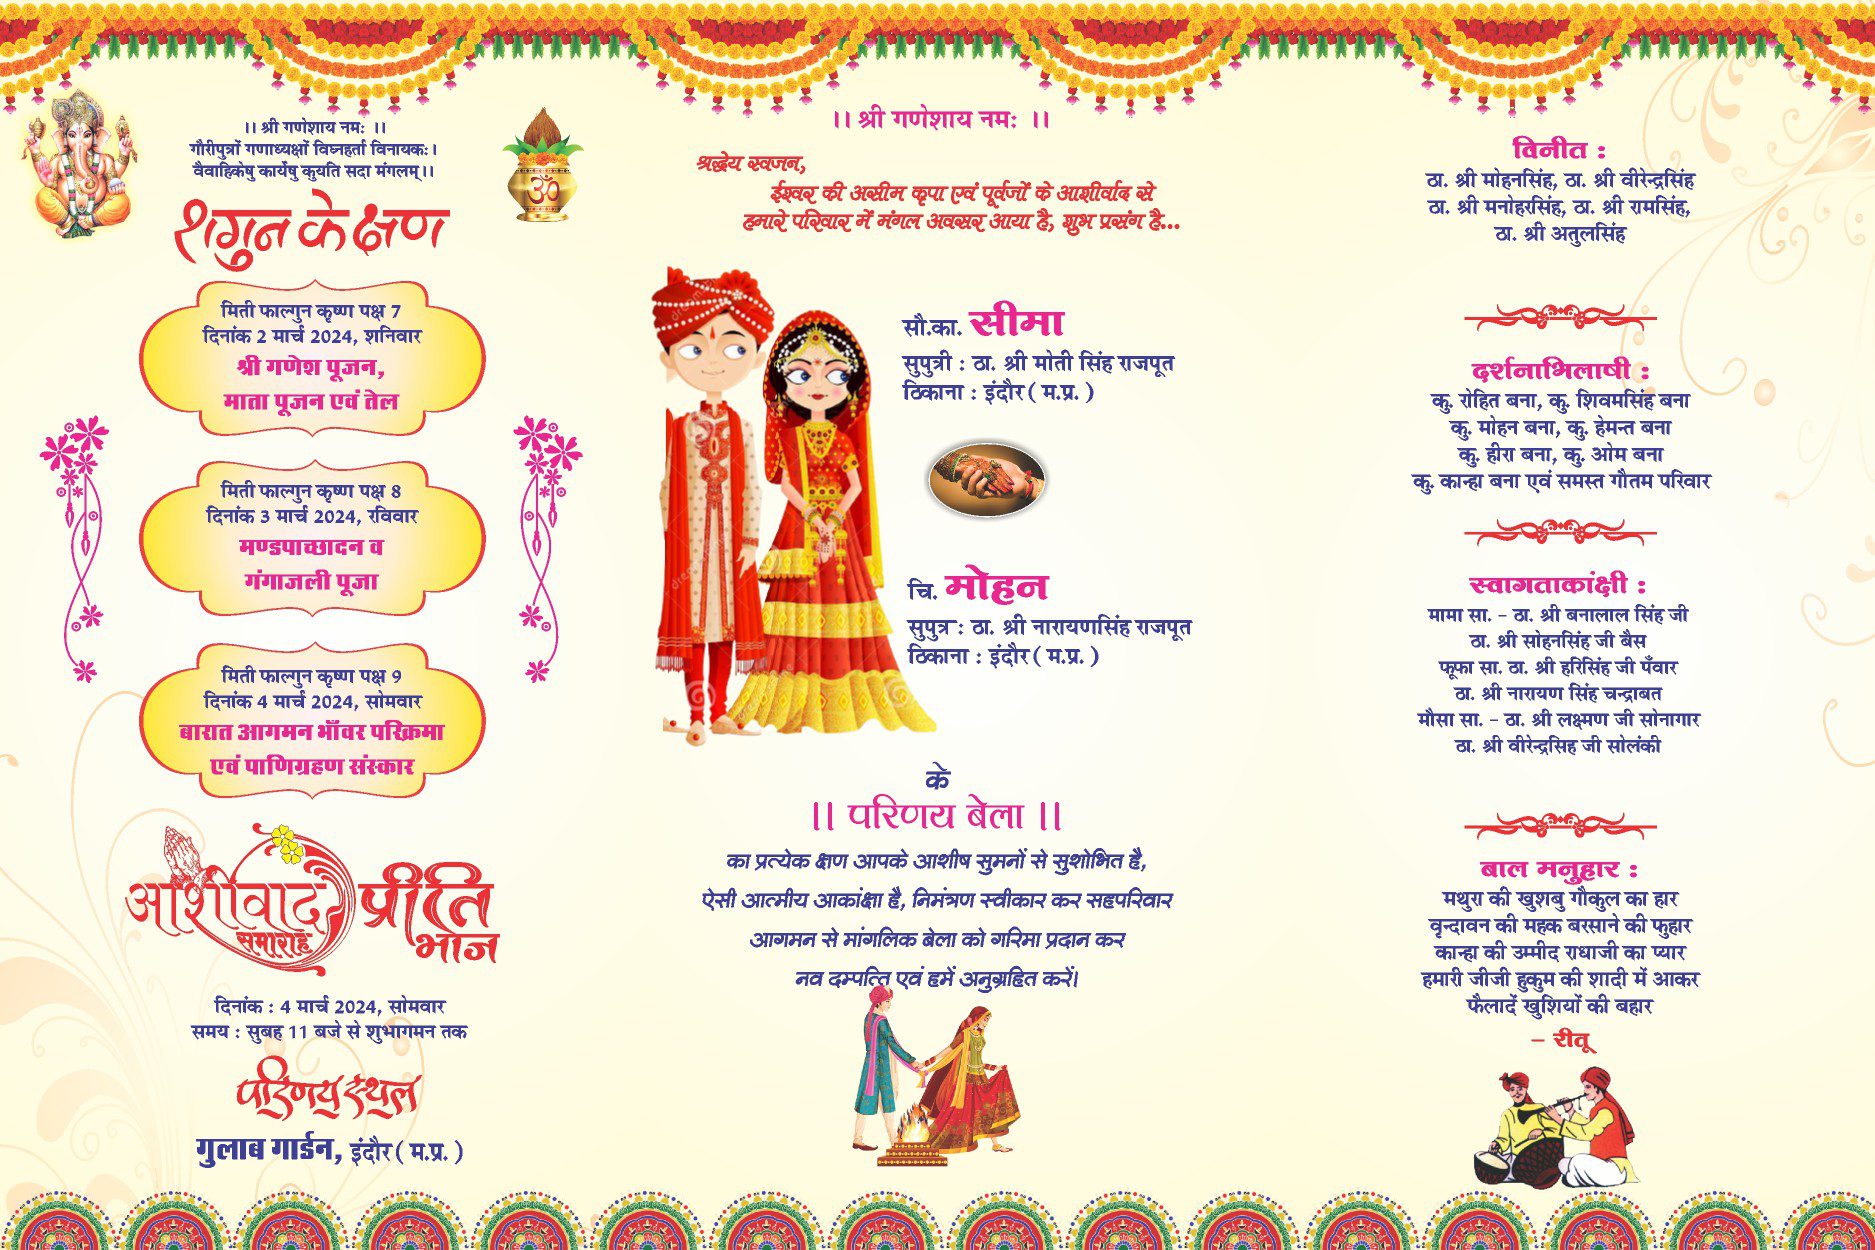 ।। श्री गणेशाय नमः ।।
गौरीपुत्रों गणाध्यक्षों विघ्नहर्ता विनायकः।
वैवाहिकेषु कार्येषु कुयति सदा मंगलम्।।
शगुन के क्षण
मिती फाल्गुन कृष्ण पक्ष 7
दिनांक 2 मार्च 2024, शनिवार
श्री गणेश पूजन,
माता पूजन एवं तेल
मिती फाल्गुन कृष्ण पक्ष 8
दिनांक 3 मार्च 2024, रविवार
मण्डपाच्छादन व
गंगाजली पूजा
मिती फाल्गुन कृष्ण पक्ष 9
दिनांक 4 मार्च 2024, सोमवार
बारात आगमन भाँवर परिक्रमा
एवं पाणिग्रहण संस्कार
आर्शीवाद समारोह प्रीति भोज
दिनांक : 4 मार्च 2024, सोमवार
समय : सुबह 11 बजे से शुभागमन तक
परिणय स्थल
गुलाब गार्डन, इंदौर ( म.प्र. )
।। श्री गणेशाय नमः ।।
श्रद्धेय स्वजन,
ईश्वर की असीम कृपा एवं पूर्वजों के आशीर्वाद से
हमारे परिवार में मंगल अवसर आया है, शुभ प्रसंग है...
सौ.का. सीमा
सुपुत्री : ठा. श्री मोती सिंह राजपूत
ठिकाना : इंदौर ( म.प्र. )
चि. मोहन
सुपुत्र : ठा. श्री नारायणसिंह राजपूत
ठिकाना : इंदौर ( म.प्र. )
के
।। परिणय बेला ।।
का प्रत्येक क्षण आपके आशीष सुमनों से सुशोभित है,
ऐसी आत्मीय आकांक्षा है, निमंत्रण स्वीकार कर सहपरिवार
आगमन से मांगलिक बेला को गरिमा प्रदान कर
नव दम्पत्ति एवं हमें अनुग्रहित करें।
विनीत :
ठा. श्री मोहनसिंह, ठा. श्री वीरेन्द्रसिंह
ठा. श्री मनोहरसिंह, ठा. श्री रामसिंह,
ठा. श्री अतुलसिंह
दर्शनाभिलाषी :
कु. रोहित बना, कु. शिवमसिंह बना
कु. मोहन बना, कु. हेमन्त बना
कु. हीरा बना, कु. ओम बना
कु. कान्हा बना एवं समस्त गौतम परिवार
स्वागताकांक्षी :
मामा सा. - ठा. श्री बनालाल सिंह जी
ठा. श्री सोहनसिंह जी बैस
फूफा सा. ठा. श्री हरिसिंह जी पँवार
ठा. श्री नारायण सिंह चन्द्राबत
मौसा सा. - ठा. श्री लक्ष्मण जी सोनागार
ठा. श्री वीरेन्द्रसिह जी सोलंकी
बाल मनुहार :
मथुरा की खुशबु गौकुल का हार
वृन्दावन की महक बरसाने की फुहार
कान्हा की उम्मीद राधाजी का प्यार
हमारी जीजी हुकुम की शादी में आकर
फैलादें खुशियों की बहार
- रीतू